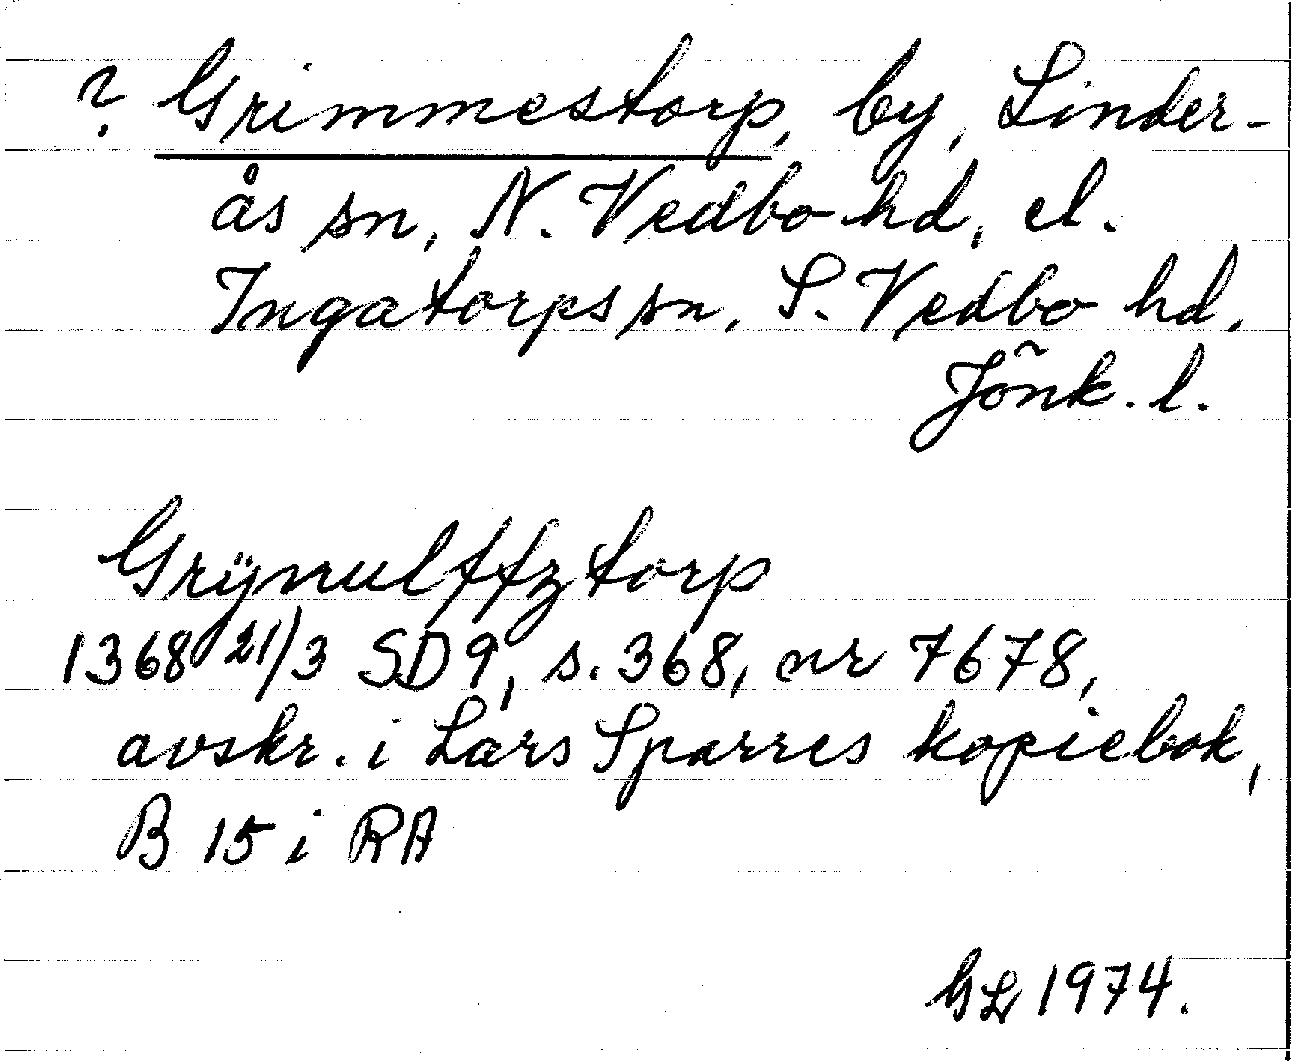 ? Grimmestorp, by, Linder-
ås sn, N. Vedbo hd, el.
Ingatorps sn, S. Vedbo hd.
Jönk. l.
Grÿnulffztorp
1368 21/3 SD 9, s. 368, nr 7678,
avskr. i Lars Sparres kopiebok,
B 15 i RA
GL 1974.